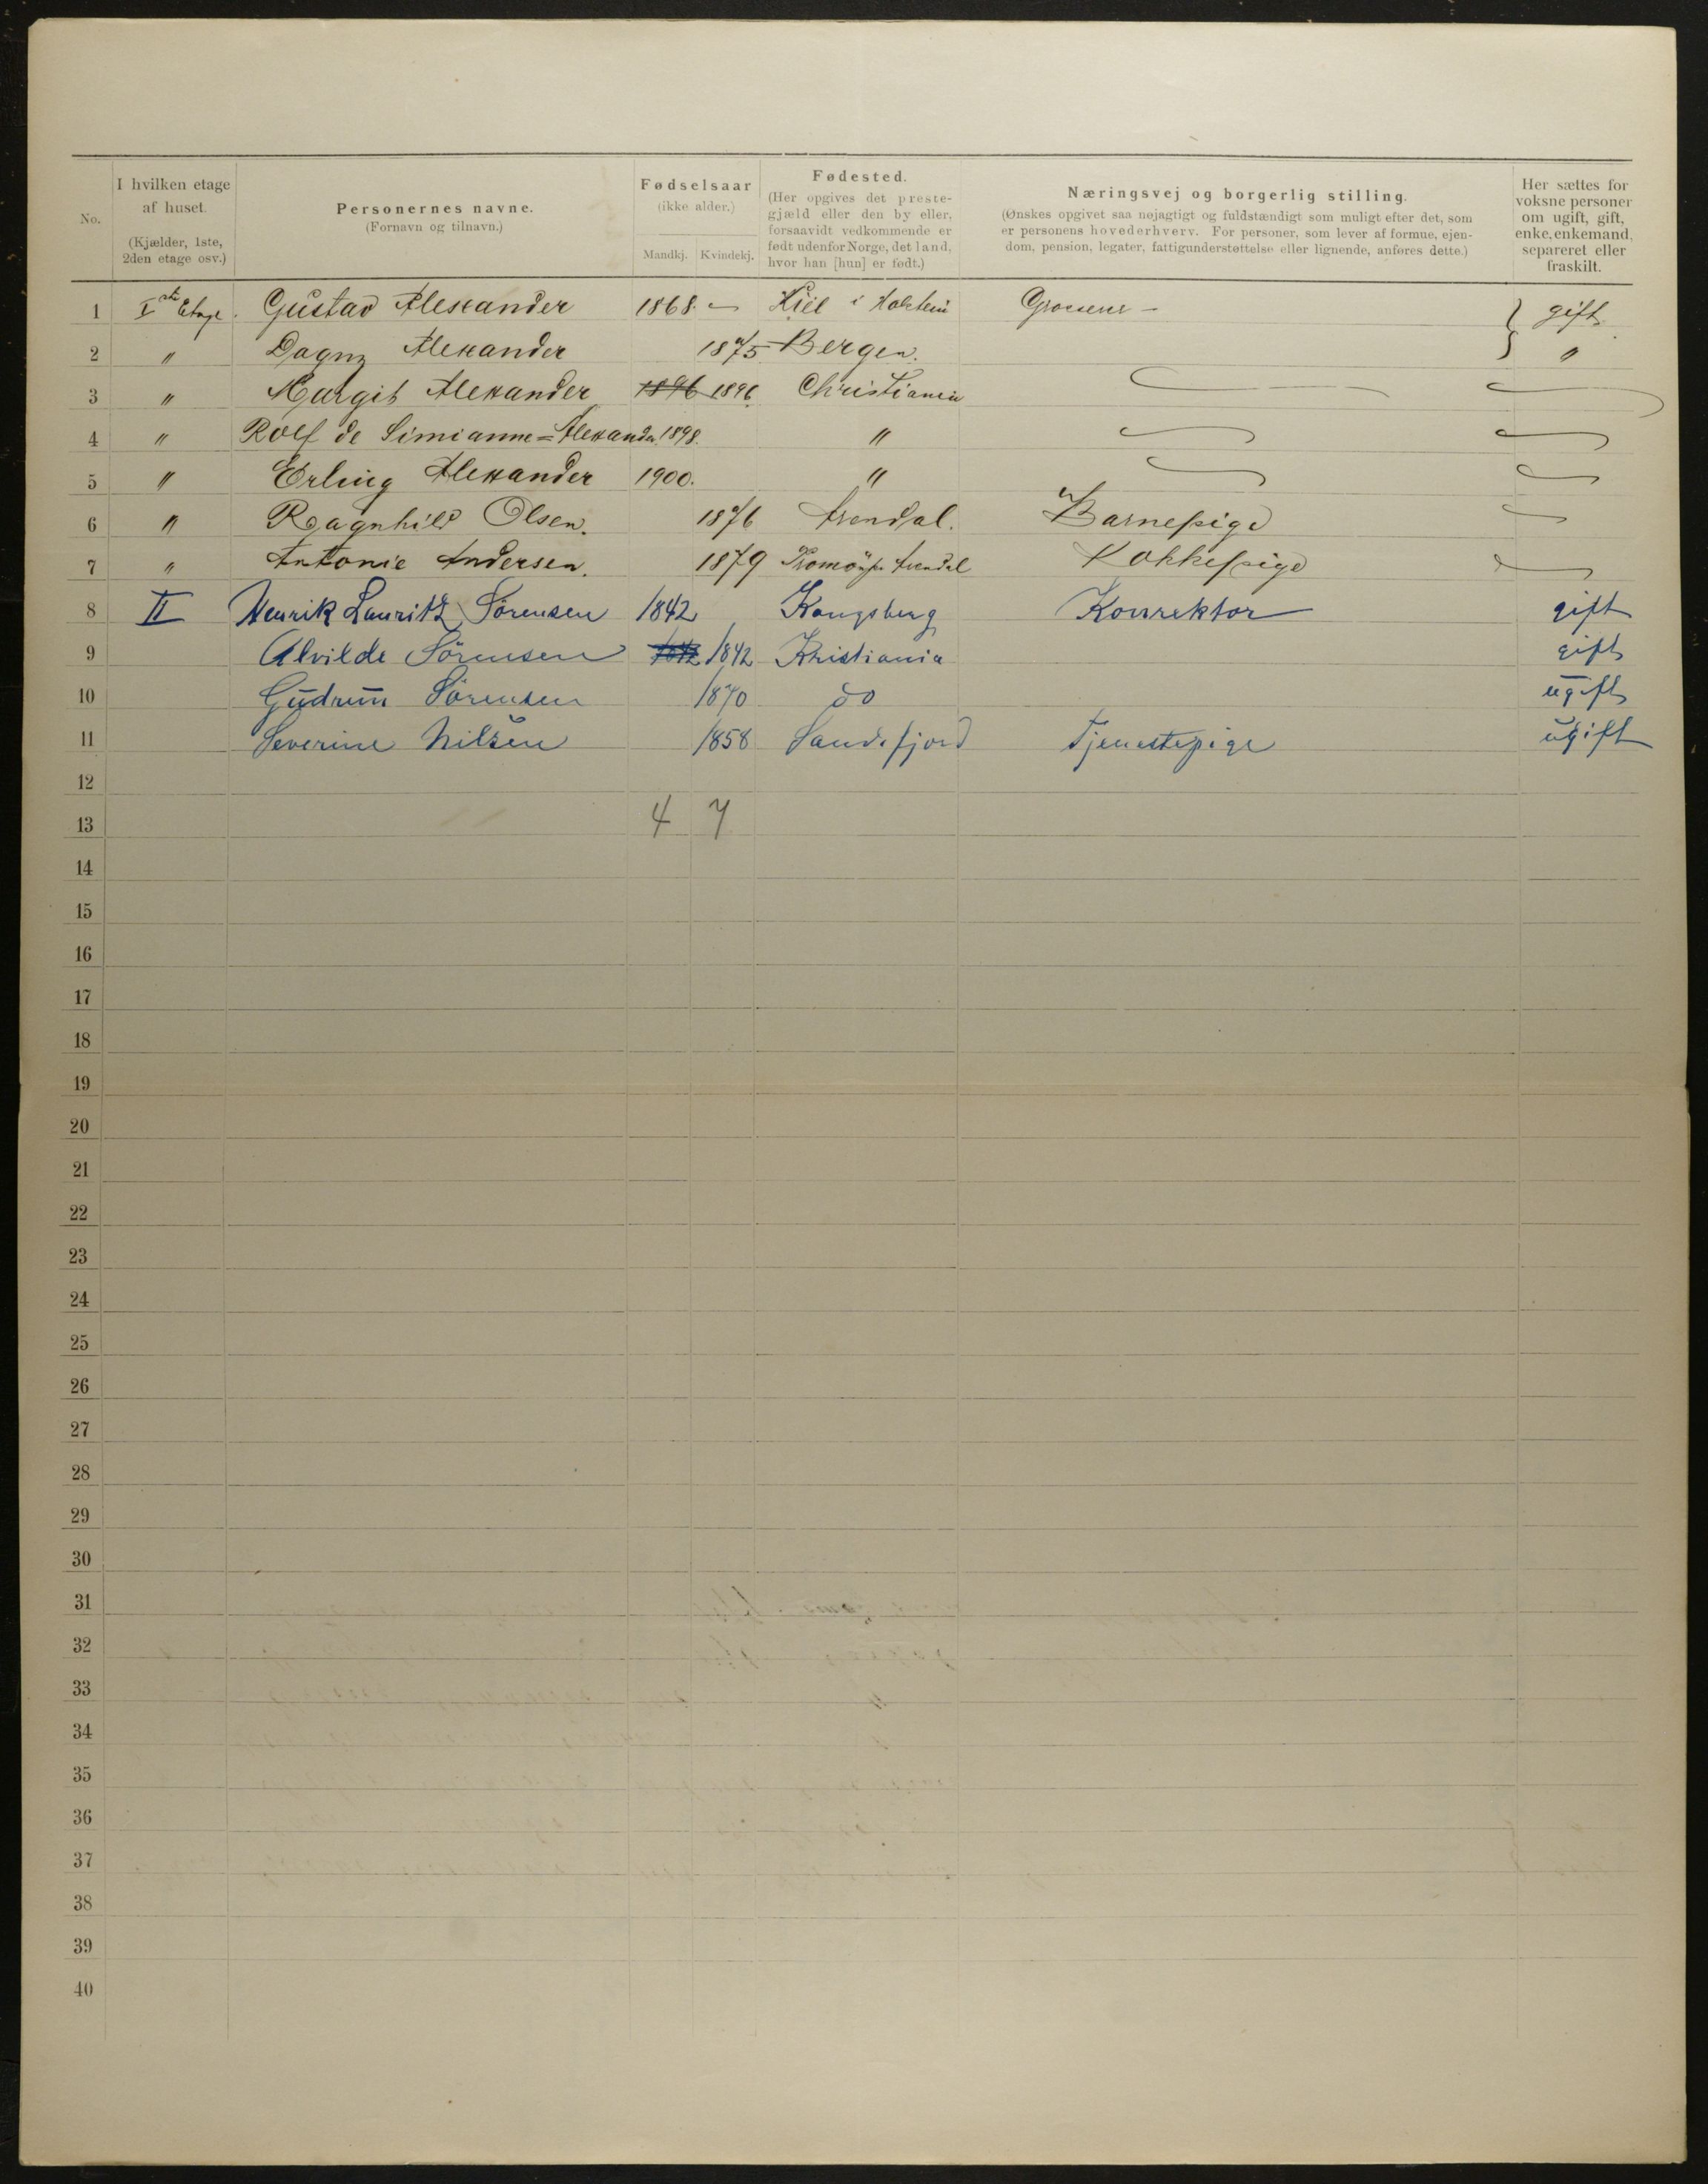 No.
I hvilken etage af huset. (Kjælder, 1ste, 2den etage osv.)
Personernes navne. (Fornavn og tilnavn.)
Fødselsaar (ikke alder.) Mandkj. Kvindekj.
Fødested. (Her opgives det prestegjæld eller den by eller, forsaavidt vedkommende er født udenfor Norge, det land, hvor han [hun] er født.)
Næringsvej og borgerlig stilling. (Ønskes opgivet saa nøjagtigt og fuldstændigt som muligt efter det, som er personens hovederhverv. For personer, som lever af formue, ejendom, pension, legater, fattigunderstøttelse eller lignende, anføres dette.)
Her sættes for voksne personer om ugift, gift, enke, enkemand, separeret eller fraskilt.
1 I ste Etage. Gustav Alexander 1868. — Kiel i Holstein gift
2 " Dagny Alexander 1875 Bergen. "
3 " Margit Alexander 1896 1896 Christiania
4 " Rolf de Simianne=Alexander 1898. "
5 " Erling Alexander 1900. "
6 " Ragnhild Olsen. 1876 Arendal. Barnepige
7 " Antonie Andersen. 1879 Arendal Kokkepige
8 II Henrik Lauritz Sörensen 1842 Kongsberg Konrektor gift
9 Alvilde Sörensen 1842 1842 Kristiania gift
10 Gudrun Sörensen 1870 do ugift
11 Severine Nilsen 1858 Sandefjord Tjenestepige ugift
12
13 4 7
14
15
16
17
18
19
20
21
22
23
24
25
26
27
28
29
30
31
32
33
34
35
36
37
38
39
40